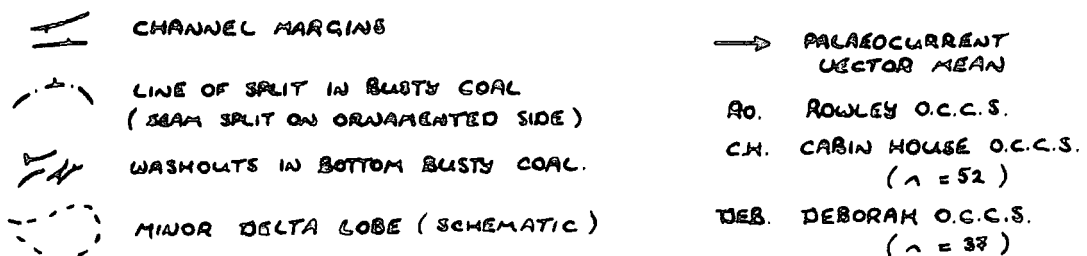 CHANNEL MARGINS
LINE OF SPLIT IN BUSTY COAL
(SEAM SPLIT ON ORNAMENTED SIDE)
WASHOUTS IN BOTTOM BUSTY COAL.
MINOR DELTA LOBE (SCHEMATIC)
PALAEOCURRENT
VECTOR MEAN
RO. ROWLEY O.C.C.S.
C.H. CABIN HOUSE O.C.C.S.
(n = 52)
DEB. DEBORAH O.C.C.S.
(n = 37)